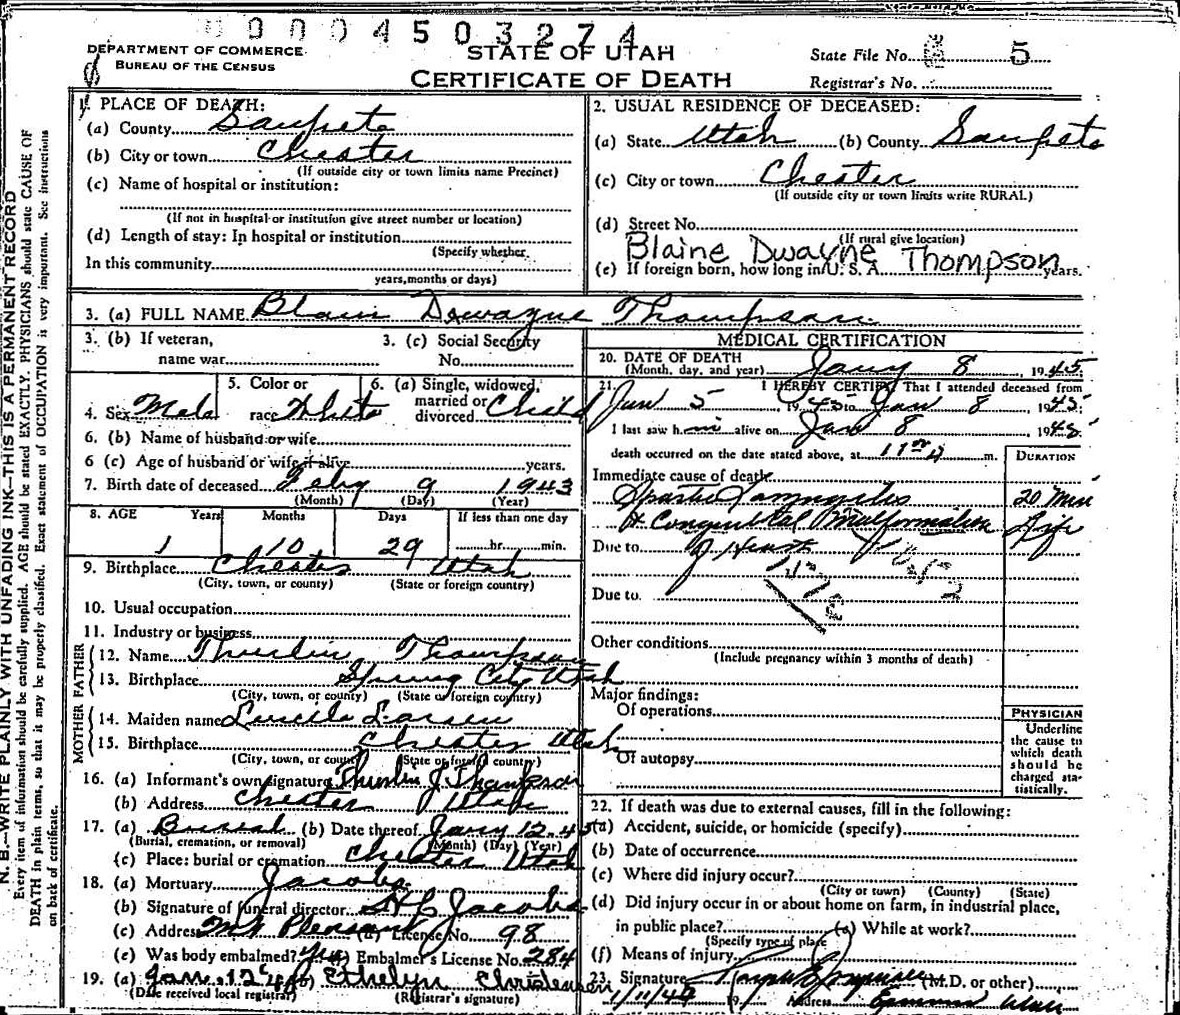 0004503274
DEPARTMENT OF COMMERCE
BUREAU OF THE CENSUS
STATE OF UTAH
CERTIFICATE OF DEATH
State File No. 5
Registrar's No.
N. B.—WRITE PLAINLY WITH UNFADING INK—THIS IS A PERMANENT RECORD
Every item of information should be carefully supplied. AGE should be stated EXACTLY. PHYSICIANS should state CAUSE OF
DEATH in plain terms, so that it may be properly classified. Exact statement of OCCUPATION is very important. See instructions
on back of certificate.
1. PLACE OF DEATH:
(a) County Sanpete
(b) City or town Chester
(If outside city or town limits name Precinct)
(c) Name of hospital or institution:
(If not in hospital or institution give street number or location)
(d) Length of stay: In hospital or institution
(Specify whether
In this community
years, months or days)
2. USUAL RESIDENCE OF DECEASED:
(a) State Utah (b) County Sanpete
(c) City or town Chester
(If outside city or town limits write RURAL)
(d) Street No.
(If rural give location)
Blaine Dwayne Thompson
(e) If foreign born, how long in U. S. A. years.
3. (a) FULL NAME Blain Dewayne Thompson
3. (b) If veteran,
name war
3. (c) Social Security
No.
4. Sex Male
5. Color or
race White
6. (a) Single, widowed,
married or
divorced Child
6. (b) Name of husband or wife
6 (c) Age of husband or wife if alive years.
7. Birth date of deceased Feby 9 1943
(Month) (Day) (Year)
8. AGE Years Months Days If less than one day
1 10 29 hr. min.
9. Birthplace Chester Utah
(City, town, or county) (State or foreign country)
10. Usual occupation
11. Industry or business
FATHER
12. Name Thurlin Thompson
13. Birthplace Spring City Utah
(City, town, or county) (State or foreign country)
MOTHER
14. Maiden name Lucile Larsen
15. Birthplace Chester Utah
(City, town, or county) (State or foreign country)
16. (a) Informant's own signature Thurlin J Thompson
(b) Address Chester Utah
17. (a) Burial (b) Date thereof Jany 12 45
(Burial, cremation, or removal) (Month) (Day) (Year)
(c) Place: burial or cremation Chester Utah
18. (a) Mortuary Jacobs
(b) Signature of funeral director Jacobs
(c) Address Mt Pleasant (d) License No. 98
(e) Was body embalmed? Yes Embalmer's License No. 284
19. (a) Jan. 12 (b) Ethelyn Christensen
(Date received local registrar) (Registrar's signature)
MEDICAL CERTIFICATION
20. DATE OF DEATH
(Month, day, and year) Jany 8, 1945
21. I HEREBY CERTIFY That I attended deceased from
Jan 5, 1945 to Jan 8, 1945
I last saw him alive on Jan 8 1945
death occurred on the date stated above, at m.
DURATION
Immediate cause of death
20 Min
Congenital Malformation Life
Due to of Heart
Due to
Other conditions
(Include pregnancy within 3 months of death)
Major findings:
Of operations
Of autopsy
PHYSICIAN
Underline
the cause to
which death
should be
charged sta-
tistically.
22. If death was due to external causes, fill in the following:
(a) Accident, suicide, or homicide (specify)
(b) Date of occurrence
(c) Where did injury occur?
(City or town) (County) (State)
(d) Did injury occur in or about home on farm, in industrial place,
in public place? (e) While at work?
(Specify type of place)
(f) Means of injury
23. Signature (M.D. or other)
Address Utah